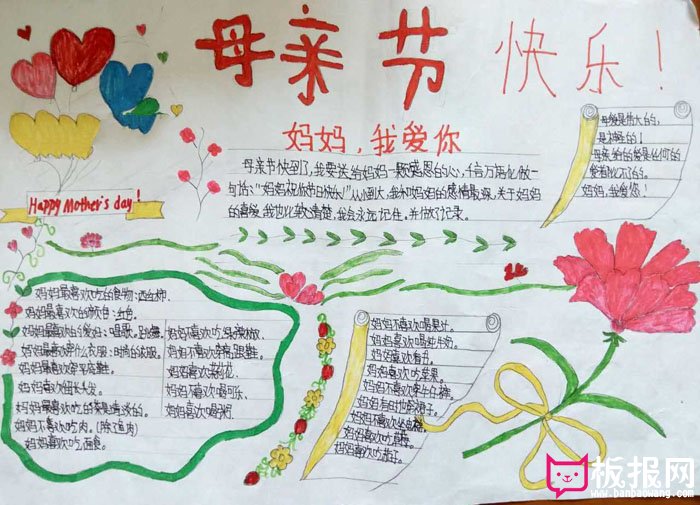 母亲节 快乐！
妈妈，我爱你
母亲节快到了，我要送给妈妈一颗感恩的心，千言万语化做一
句话："妈妈祝你节日快乐！"从小到大，我和妈妈的感情最深，关于妈妈
的喜爱，我也比较清楚，我会永远记住。并做了记录。
母爱是伟大的，
是 的！
母亲给的爱是任何的
爱 比不了的。
妈妈，我爱您！
Happy Mother's day！
妈妈最喜欢吃的食物：西红柿。
妈妈最喜欢的颜色：红色。
妈妈最喜欢的爱好：唱歌。跳舞。
妈妈最喜欢穿什么衣服：时尚的衣服。
妈妈最喜欢穿平底鞋。
妈妈喜欢留长发。
妈妈最喜欢吃的菜是清淡的。
妈妈不喜欢吃肉。（除了鱼肉）
妈妈喜欢吃面食。
妈妈不喜欢吃 辣椒。
妈妈不喜欢穿高跟鞋。
妈妈喜欢菊花。
妈妈不喜欢喝可乐。
妈妈喜欢喝酒
妈妈不喜欢喝果汁。
妈妈喜欢喝纯牛奶。
妈妈喜欢看书。
妈妈喜欢吃苹果。
妈妈不喜欢穿牛仔裤。
妈妈有自己的 子。
妈妈不喜欢坐 。
妈妈喜欢吃 。
妈妈喜欢吃茄子。
板报网
www.banbaowang.com